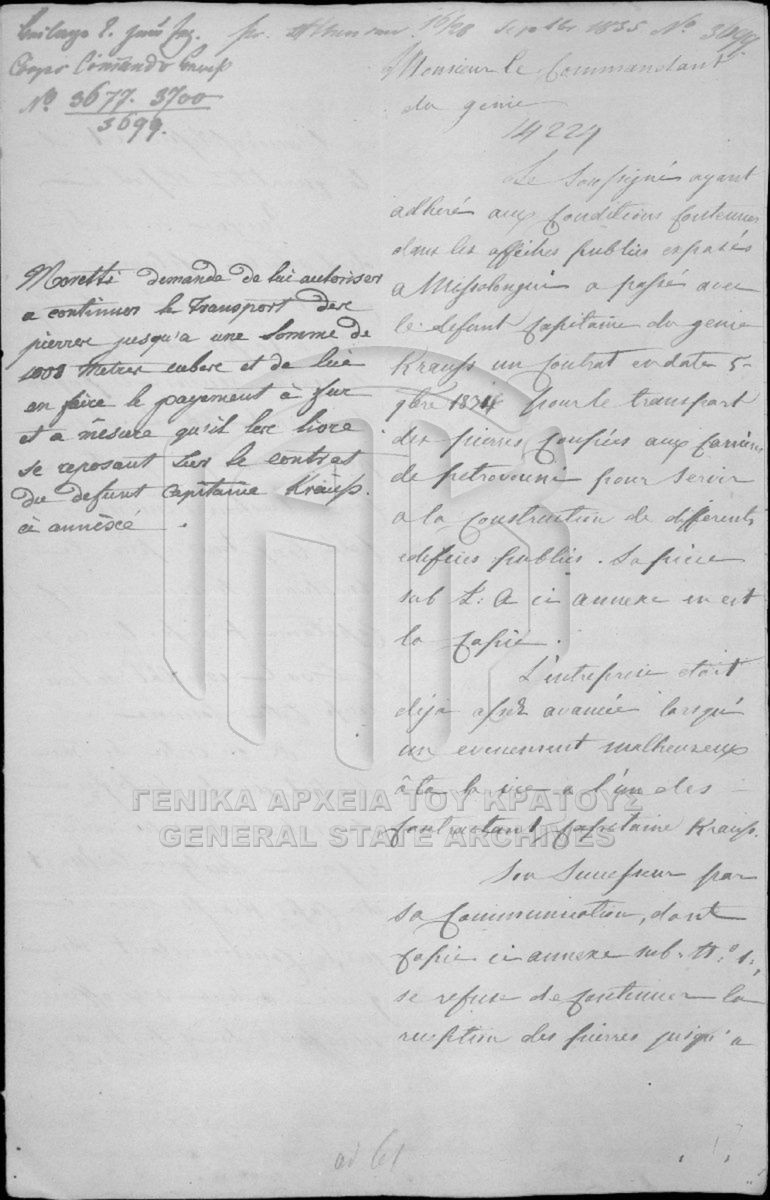 Corps Comando
No 3677. 3700
3699.
pr. 16/28 1835 No 3699
Monsieur le Commandant
du genie
14224
Le Soussigné ayant
adheré aux Conditions Contenues
dans les affiches publics exposés
a Missolongui a passé avec
le defunt Capitaine du genie
Krauss un Contrat en date 5
gbre 1834 pour le transport
des pierres Coupées aux Carrieres
de petrovouni pour servir
a la Construction de differents
edifices publics. Sa piece
sub L: A ci annexe en est
la Copie.
L'entreprise etoit
deja assez avancée lorsqué
un evenement malheureux
ôta la vie a l'un des
Contractant Capitaine Krauss.
Son Successeur par
sa Communication, dont
Copie ci annexe sub. No 1.,
se refuse de Continuer la
reception des pierres jusqu'a
Moretti demande de lui autoriser
a continuer le Transport des
pierres jusqu'a une Somme de
1000 metres cubes et de lui
en faire le payement à fur
et a mesure qu'il les livre
se reposant sur le contrat
du defunt Capitaine Krauss.
ci annéxé.
ad 61
ΓΕΝΙΚΑ ΑΡΧΕΙΑ ΤΟΥ ΚΡΑΤΟΥΣ
GENERAL STATE ARCHIVES